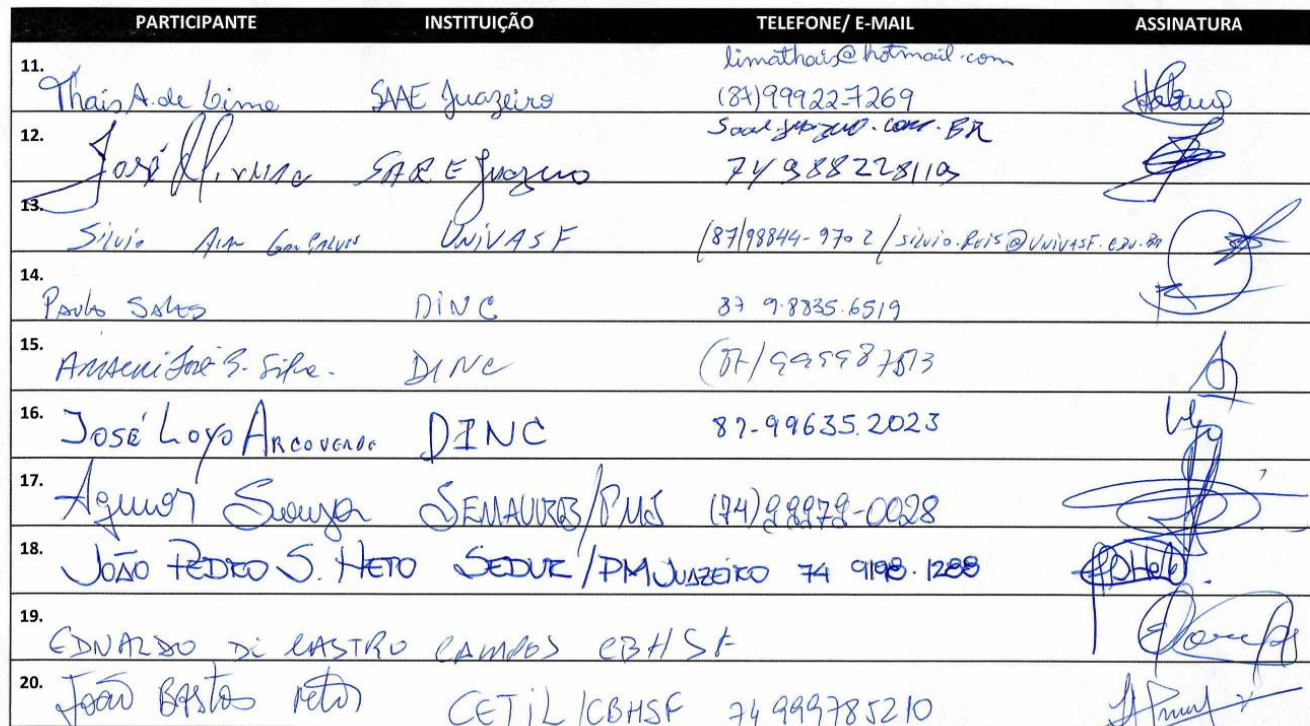 PARTICIPANTE INSTITUIÇÃO TELEFONE/ E-MAIL ASSINATURA
limathais@hotmail.com
11. Thais A. de Lima SAAE Juazeiro (87)99922-7269
12. José SAAE Juazeiro 74 988228119
13. Silvio UNIVASF (87)98844-9702 / silvio.Reis@UNIVASF.edu.BR
14. Paulo Sales DINC 87 9.8835.6519
15. José Silva. DINC
16. José Loyo Arcoverde DINC 87-99635.2023
17. Souza /PMJ (74)99979-0028
18. JOÃO PEDRO S. NETO SEDUR/PMJUAZEIRO 74 9198.1288
19. EDNALDO DE CASTRO CAMPOS CBHSF
20. João Bastos Neto CETIL/CBHSF 74 999785210